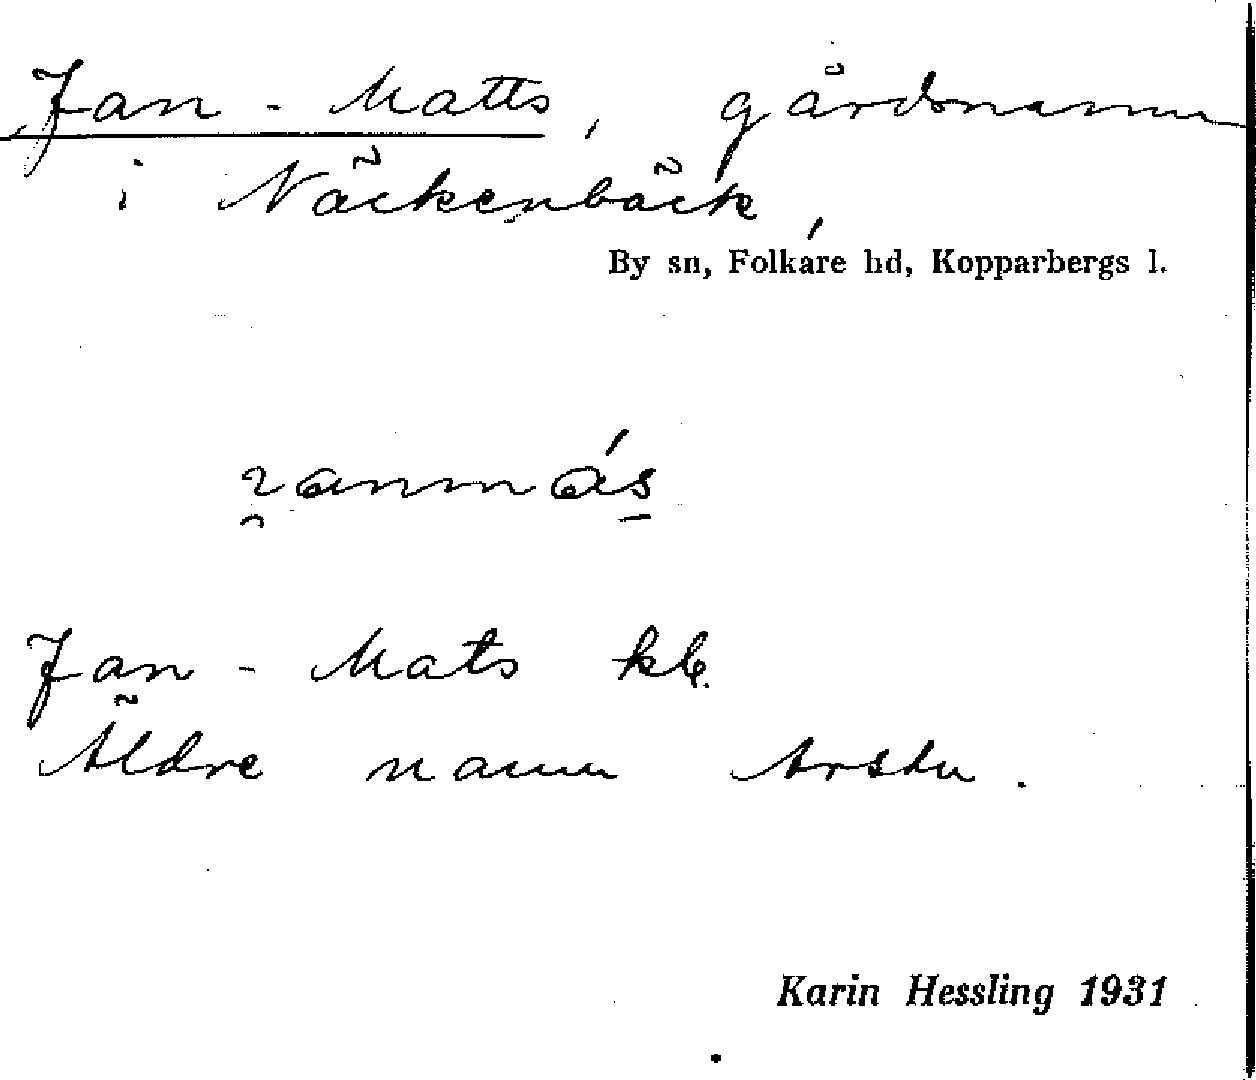 Jan-Matts, gårdsnamn
i Näckenbäck,
By sn, Folkare hd, Kopparbergs l.
Jan-Mats kb.
Äldre namn Arstu.
Karin Hessling 1931